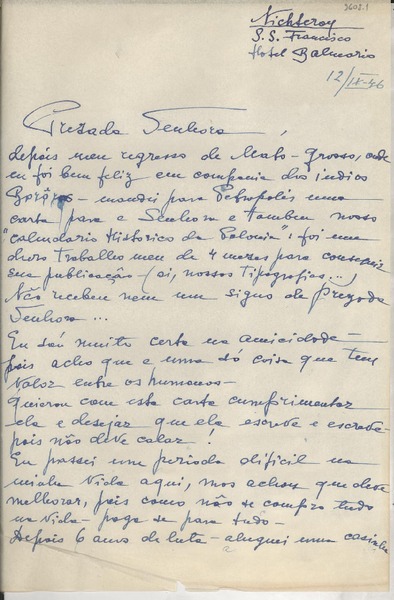 3608.1
Nichteroy
S.S. Francisco
Hotel Balneario
12/IX-46
Prezada Senhora,
depois meu regresso de Mato-Grosso, onde
eu foi bem feliz em compania dos indios
- mandei para Petropolis uma
carta para a Senhora e tambem nosso
"Calendario Historico da Polonia", foi um
duro trabalho meu de 4 mezes para conseguir
sua publicação - (ai, nossas tipografias...)
Não recebeu nem um signo de Prezada
Senhora...
Eu sou muito certa na amicidade -
pois acho que e uma só coisa que tem
valor entre os humanos -
quierou com esta carta cumprimentar
ela e desejar que ela escreve e escreve
pois não deve calar!
Eu passei um perioda dificil na
minha Vida aqui, mas achou que deve
melhorar, pois como não se compra tudo
na Vida - paga se para tudo -
Depois 6 anos de luta - aluguei uma casinha